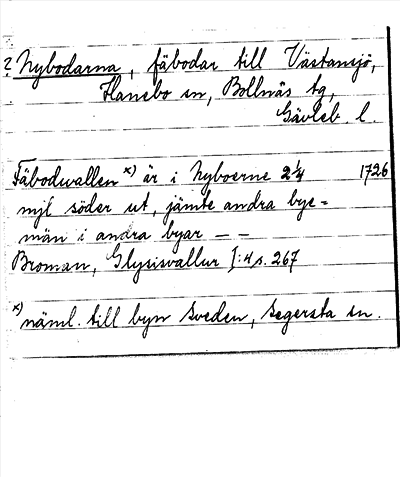 ? Nybodarna, fäbodar till Västansjö,
Hanebo sn, Bollnäs tg,
Gävleb. l.
Fäbodwallen x) är i Nyboerne 2 1/4 1726
mjl söder ut, jämte andra bye=
män i andra byar – –
Broman, Glysisvallur I:4 s. 267
x) näml. till byn Sveden, Segersta sn.